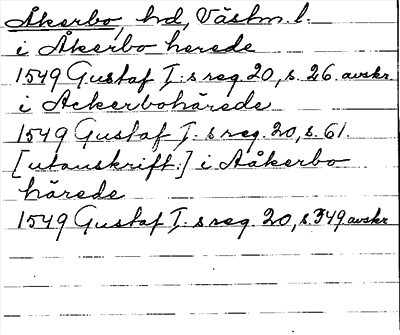 Åkerbo, hd, Västm. l.
i Åkerbo herede
1549 Gustaf I:s reg. 20, s. 26. avskr.
i Ackerbohärede
1549 Gustaf I:s reg. 20, s. 61.
[utanskrift.] i Aåkerbo
härede
1549 Gustaf I:s reg. 20, s. 349 avskr